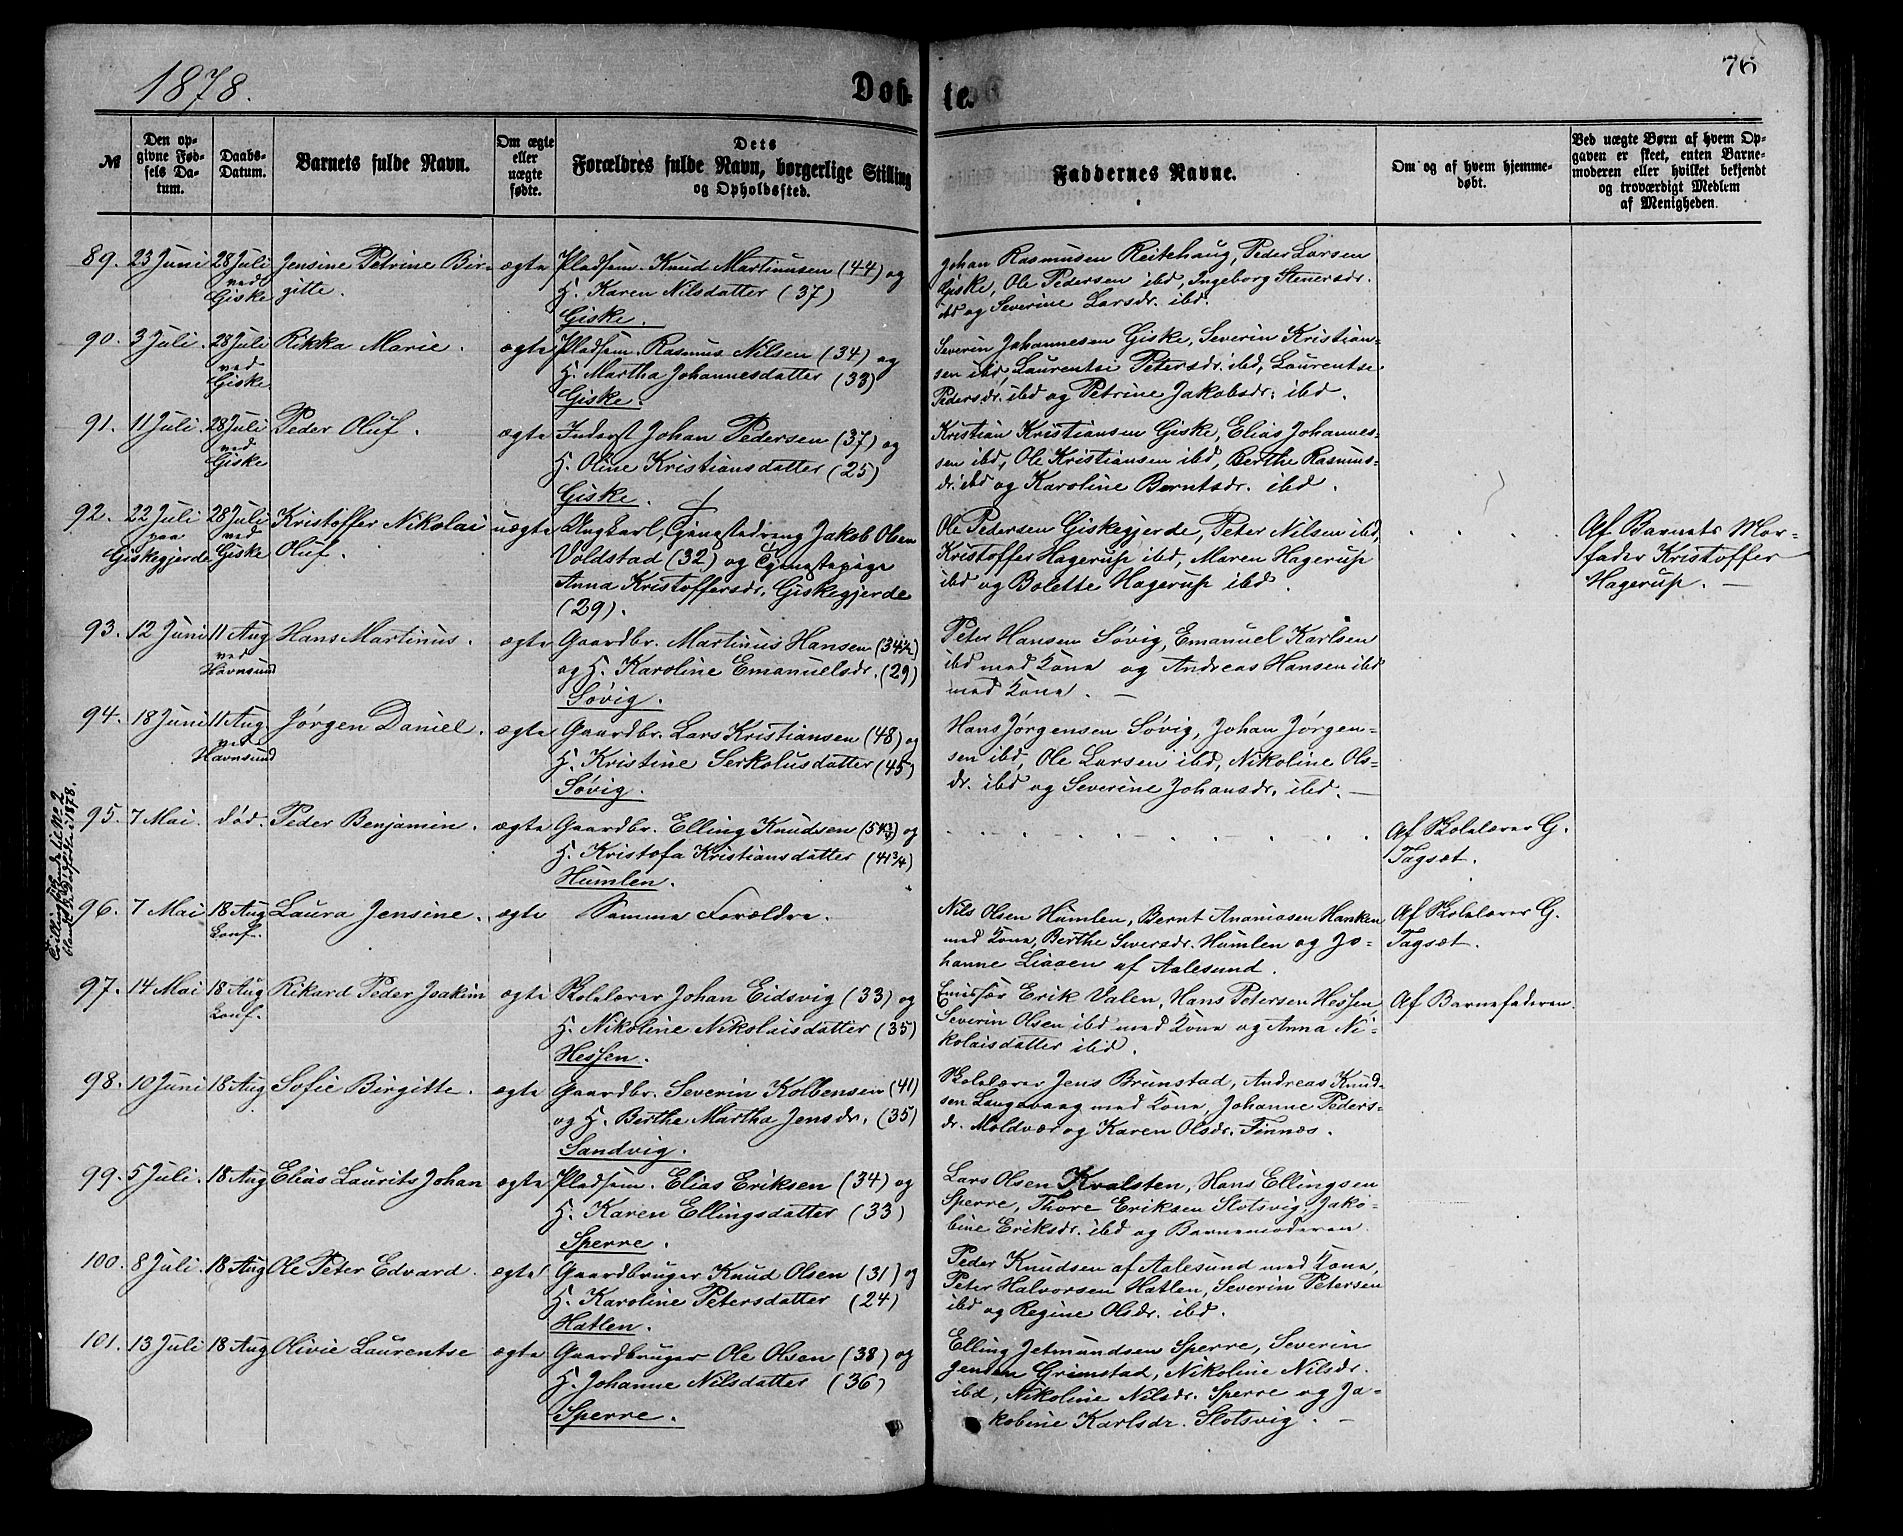 1878.
Døb-
te.
76
№
Den op-
givne Fød-
sels Da-
tum.
Daabs-
Datum.
Barnets fulde Navn.
Om ægte
eller
uægte
fødte.
Dets
Forældres fulde Navn, borgerlige Stilling
og Opholdssted.
Faddernes Navne.
Om og af hvem hjemme-
døbt.
Ved uægte Børn af hvem Op-
gaven er skeet, enten Barne-
moderen eller hvilket bekjendt
og troværdigt Medlem
af Menigheden.
89. 23 Juni 28 Juli ved Giske
Jensine Petrine Bir-
gitte.
ægte
Pladsem. Knud Martinusen (44) og
H. Karen Nilsdatter (37)
Giske.
Johan Rasmusen Reitehaug, Peder Larsen
Giske, Ole Pedersen ibd, Ingeborg Stenersdr.
ibd og Severine Larsdr. ibd.
90. 3 Juli. 28 Juli ved Giske
Rikka Marie.
ægte
Pladsem. Rasmus Nilsen (34) og
H. Martha Johannesdatter (33)
Giske.
Severin Johannesen Giske, Severin Kristian-
sen ibd, Laurentse Petersdr. ibd, Laurentse
Pedersdr. ibd og Petrine Jakobsdr. ibd.
91. 11 Juli. 28 Juli ved Giske
Peder Oluf.
ægte
Inderst Johan Pedersen (37) og
H. Oline Kristiansdatter (25)
Giske.
Kristian Kristiansen Giske, Elias Johannes-
sen ibd, Ole Kristiansen ibd, Berthe Rasmus-
dr. ibd og Karoline Berntsdr. ibd.
92. 22 Juli paa Giskegjerde 28 Juli ved Giske
Kristoffer Nikolai
Oluf.
uægte
Ungkarl, Tjenestedreng Jakob Olsen
Voldstad (32) og Tjenestepige
Anna Kristoffersdr. Giskegjerde
(29).
Ole Pedersen Giskegjerde, Peter Nilsen ibd,
Kristoffer Hagerup ibd, Maren Hagerup
ibd og Bolette Hagerup ibd.
Af Barnets Mor-
fader Kristoffer
Hagerup. —
93. 12 Juni 11 Aug ved Havnsund
Hans Martinus.
ægte
Gaardbr. Martinus Hansen (34½)
og H. Karoline Emanuelsdr. (29)
Søvig.
Peter Hansen Søvig, Emanuel Karlsen
ibd med Kone og Andreas Hansen ibd
med Kone. —
94. 18 Juni 11 Aug ved Havnsund
Jørgen Daniel.
ægte
Gaardbr. Lars Kristiansen (48) og
H. Kristine Serkolusdatter (45)
Søvig.
Hans Jørgensen Søvig, Johan Jørgen-
sen ibd, Ole Larsen ibd, Nikoline Ols-
dr. ibd og Severine Johansdr. ibd. —
Tvillingfødende Litr № 2
1878.
95. 7 Mai. død.
Peder Benjamin.
ægte
Gaardbr. Elling Knudsen og
H. Kristofa Kristiansdatter (41¾)
Humlen.
Af Skolelærer G.
Tagsæt.
96. 7 Mai 18 Aug Conf.
Laura Jensine.
ægte
Samme Forældre.
Nils Olsen Humlen, Bernt Ananiasen Hanken
med Kone, Berthe Siversdr. Humlen og Jo-
hanne Liaaen af Aalesund.
Af Skolelærer G.
Tagsæt.
97. 14 Mai 18 Aug Conf.
Rikard Peder Joakim
ægte
Skolelærer Johan Eidsvig (33) og
H. Nikoline Nikolaisdatter (35)
Hessen.
Emissær Erik Valen, Hans Petersen Hessen,
Severin Olsen ibd med Kone og Anna Ni-
kolaisdatter ibid.
Af Barnefaderen.
98. 10 Juni 18 Aug
Sofie Birgitte.
ægte
Gaardbr. Severin Kolbensen (41)
og H. Berthe Martha Jensdr. (35)
Sandvig.
Skolelærer Jens Brunstad, Andreas Knud-
sen Langevaag med Kone, Johanne Peders-
dr. Moldvær og Karen Olsdr. Tinnes.
99. 5 Juli. 18 Aug
Elias Laurits Johan
ægte
Pladsem. Elias Eriksen (34) og
H. Karen Ellingsdatter (33)
Sperre.
Lars Olsen Kvalsten, Hans Ellingsen
Sperre, Thore Eriksen Slotsvig, Jako-
bine Eriksdr. ibd og Barnemoderen.
100. 8 Juli. 18 Aug
Ole Peter Edvard.
ægte
Gaardbruger Knud Olsen (31) og
H. Karoline Petersdatter (24)
Hatlen.
Peder Knudsen af Aalesund med Kone,
Peter Halvorsen Hatlen, Severin Petersen
ibd og Regine Olsdr. ibd.
101. 13 Juli 18 Aug
Olivie Laurentse
ægte
Gaardbruger Ole Olsen (38) og
H. Johanne Nilsdatter (36)
Sperre.
Elling Jetmundsen Sperre, Severin
Jensen Grimstad, Nikoline Nilsdr.
ibd, Nikoline Nilsdr. Sperre og Ja-
kobine Karlsdr. Slotsvig. —